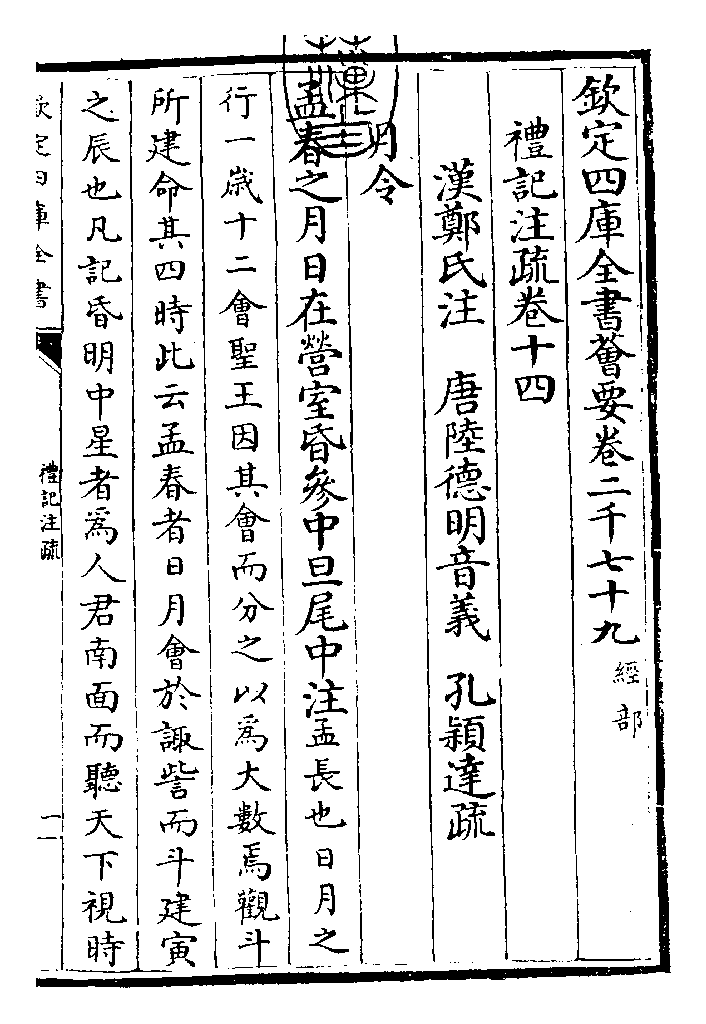 欽定四庫全書薈要卷二千七十九 經部
禮記注疏卷十四
漢鄭氏注 唐陸德明音義 孔穎達疏
月令
孟春之月日在營室昏參中旦尾中注孟長也日月之
行一歲十二會聖王因其會而分之以爲大數焉觀斗
所建命其四時此云孟春者日月會於諏訾而斗建寅
之辰也凡記昏明中星者爲人君南面而聽天下視時
欽定四庫全書
禮記注疏
一